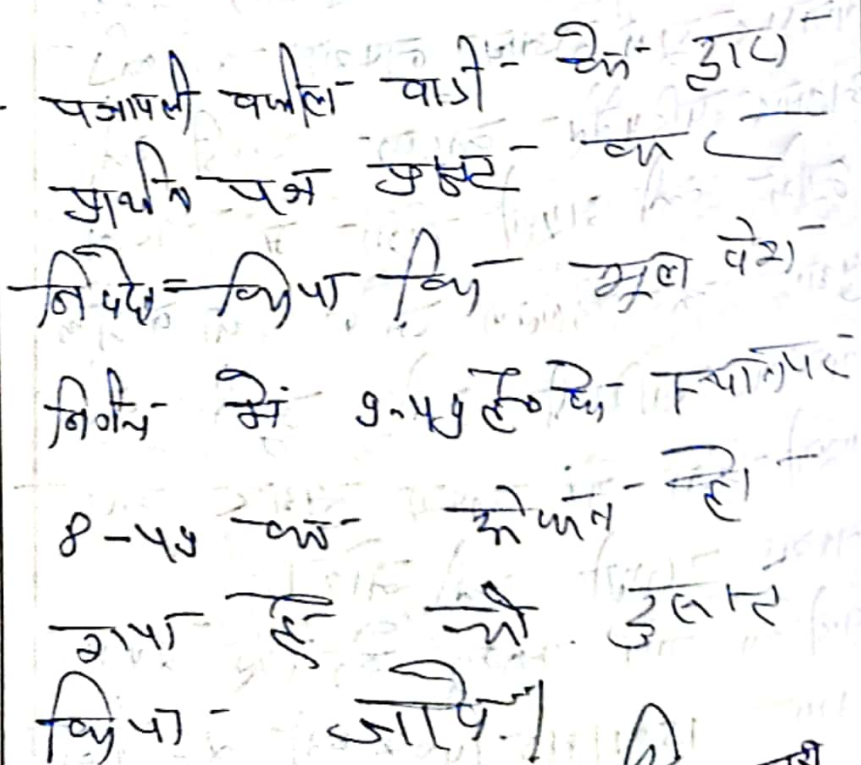 पत्रावली वकील वादी के द्वारा
प्रार्थना पत्र प्रस्तुत कर
निवेदन किया कि मूल पेश
निर्णय में 9-59 है० के स्थान पर
8-59 का अंकन हो
गया है जो दुरुस्त
किया जावे।